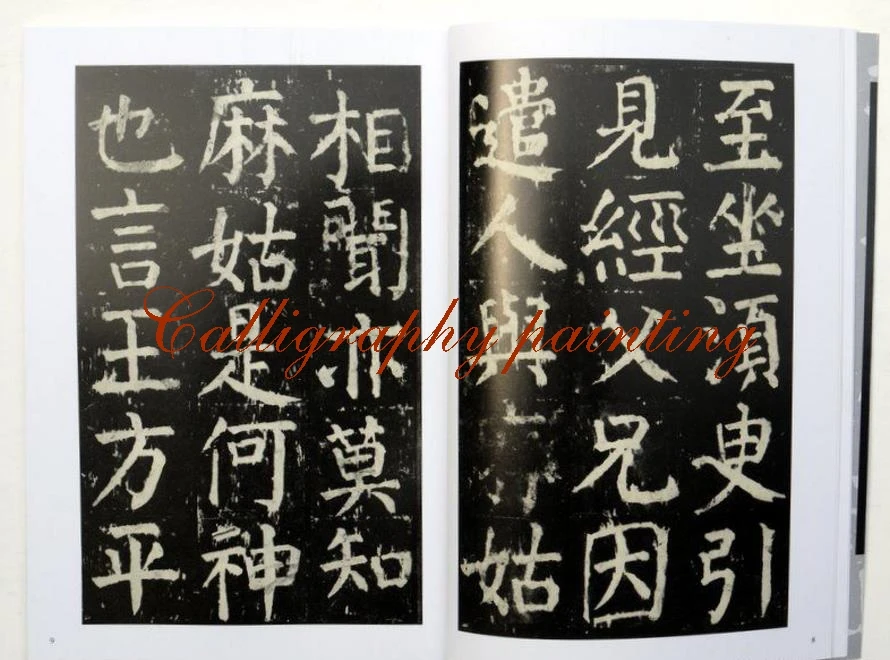 至坐須臾引
見經父兄因
遣人與姑
8
相聞亦莫知
麻姑是何神
也言王方平
9
Calligraphy painting